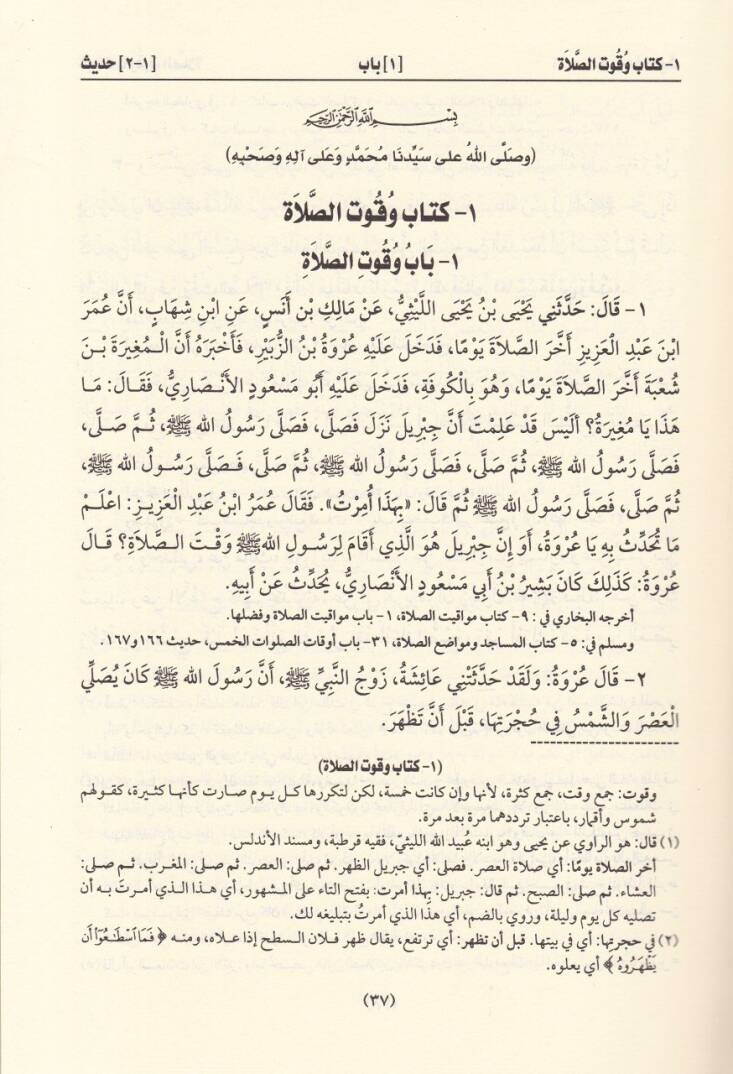 ١- كتاب وقُوت الصَّلَاة
[١] باب
[١-٢] حديث
بِسْمِ اللَّهِ الرَّحْمَنِ الرَّحِيمِ
(وصَلَّى اللهُ على سَيِّدنَا محَمَّدٍ وَعَلى آلِهِ وَصَحْبِهِ)
١- كتاب وقُوت الصَّلَاة
١- بَابُ وقُوتِ الصَّلَاةِ
١- قَالَ: حَدَّثَنِي يَحْيَى بْنُ يَحْيَى اللَّيْثِيُّ، عَنْ مَالِكِ بْنِ أَنَسٍ، عَنِ ابْنِ شِهَابٍ، أَنَّ عُمَرَ
ابْنَ عَبْدِ الْعَزِيزِ أَخَّرَ الصَّلَاةَ يَوْمًا، فَدَخَلَ عَلَيْهِ عُرْوَةُ بْنُ الزُّبَيْرِ، فَأَخْبَرَهُ أَنَّ الْمُغِيرَةَ بْنَ
شُعْبَةَ أَخَّرَ الصَّلَاةَ يَوْمًا، وَهُوَ بِالْكُوفَةِ، فَدَخَلَ عَلَيْهِ أَبُو مَسْعُودٍ الْأَنْصَارِيُّ، فَقَالَ: مَا
هَذَا يَا مُغِيرَةُ؟ أَلَيْسَ قَدْ عَلِمْتَ أَنَّ جِبْرِيلَ نَزَلَ فَصَلَّى، فَصَلَّى رَسُولُ الله ﷺ، ثُمَّ صَلَّى،
فَصَلَّى رَسُولُ الله ﷺ، ثُمَّ صَلَّى، فَصَلَّى رَسُولُ الله ﷺ، ثُمَّ صَلَّى، فَصَلَّى رَسُولُ الله ﷺ،
ثُمَّ صَلَّى، فَصَلَّى رَسُولُ الله ﷺ ثُمَّ قَالَ: «بِهَذَا أُمِرْتُ». فَقَالَ عُمَرُ ابْنُ عَبْدِ الْعَزِيزِ: اعْلَمْ
مَا تُحَدِّثُ بِهِ يَا عُرْوَةُ، أَوَ إِنَّ جِبْرِيلَ هُوَ الَّذِي أَقَامَ لِرَسُولِ اللهِ ﷺ وَقْتَ الصَّلَاةِ؟ قَالَ
عُرْوَةُ: كَذَلِكَ كَانَ بَشِيرُ بْنُ أَبِي مَسْعُودٍ الْأَنْصَارِيُّ، يُحَدِّثُ عَنْ أَبِيهِ.
أخرجه البخاري في: ٩- كتاب مواقيت الصلاة، ١- باب مواقيت الصلاة وفضلها.
ومسلم في: ٥- كتاب المساجد ومواضع الصلاة، ٣١- باب أوقات الصلوات الخمس، حديث ١٦٦ و١٦٧.
٢- قَالَ عُرْوَةُ: وَلَقَدْ حَدَّثَتْنِي عَائِشَةُ، زَوْجُ النَّبِيِّ ﷺ، أَنَّ رَسُولَ الله ﷺ كَانَ يُصَلِّي
الْعَصْرَ وَالشَّمْسُ فِي حُجْرَتِهَا، قَبْلَ أَنْ تَظْهَرَ.
(١- كتاب وقوت الصلاة)
وقوت: جمع وقت، جمع كثرة، لأنها وإن كانت خمسة، لكن لتكررها كل يوم صارت كأنها كثيرة، كقولهم
شموس وأقمار، باعتبار ترددهما مرة بعد مرة.
(١) قال: هو الراوي عن يحيى وهو ابنه عُبيد الله الليثيّ، فقيه قرطبة، ومسند الأندلس.
أخر الصلاة يومًا: أي صلاة العصر. فصلى: أي جبريل الظهر. ثم صلى: العصر. ثم صلى: المغرب. ثم صلى:
العشاء. ثم صلى: الصبح. ثم قال: جبريل: بهذا أمرت: بفتح التاء على المشهور، أي هذا الذي أمرتَ به أن
تصليه كل يوم وليلة، وروي بالضم، أي هذا الذي أمرتُ بتبليغه لك.
(٢) في حجرتها: أي في بيتها. قبل أن تظهر: أي ترتفع، يقال ظهر فلان السطح إذا علاه، ومنه ﴿فَمَا اسْطَاعُوا أَن
يَظْهَرُوهُ﴾ أي يعلوه.
(٣٧)